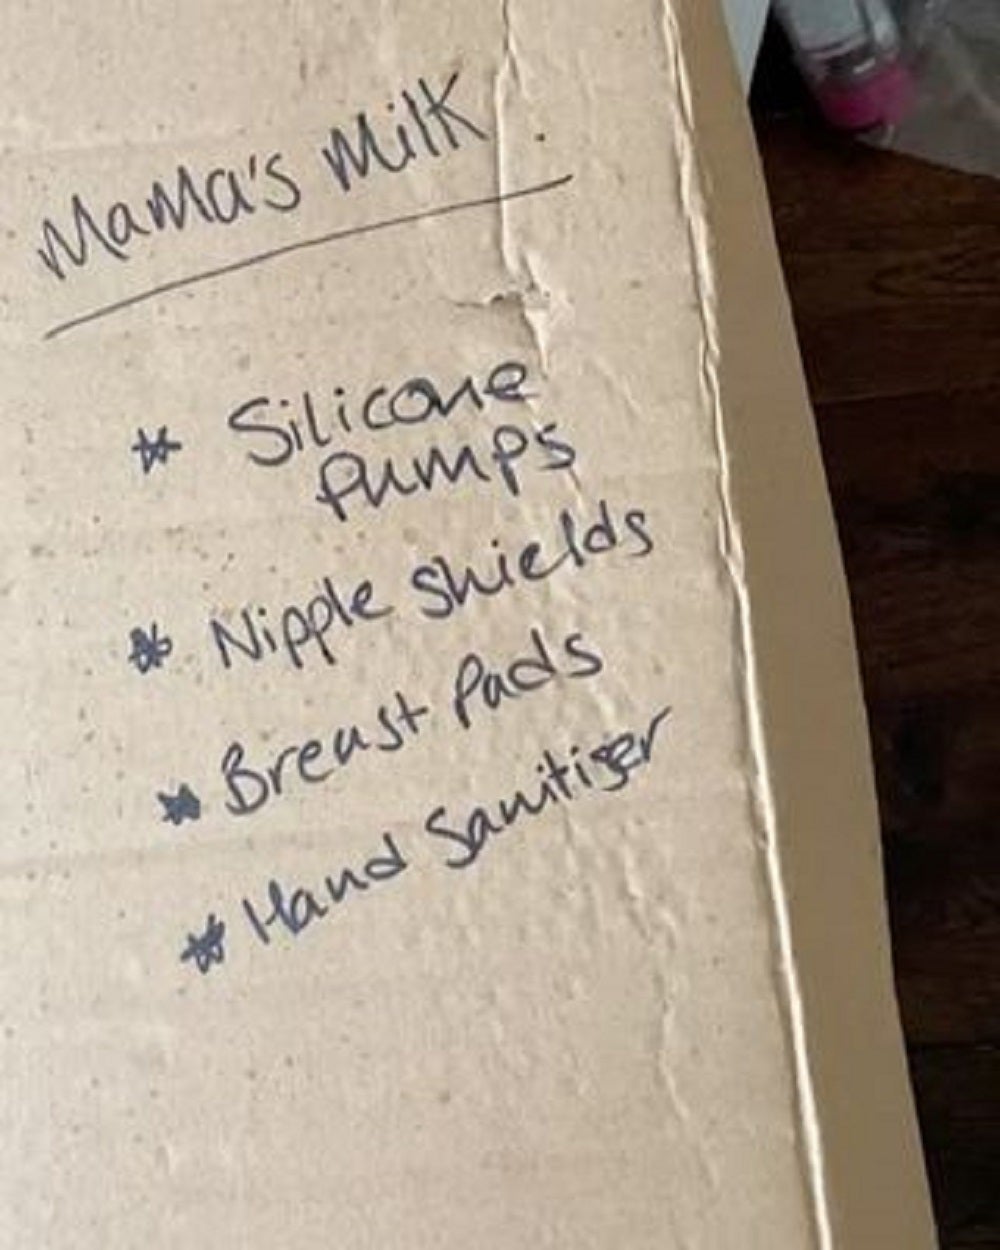 Mama's Milk.
* Silicone
Pumps
* Nipple Shields
* Breast Pads
* Hand Sanitiser